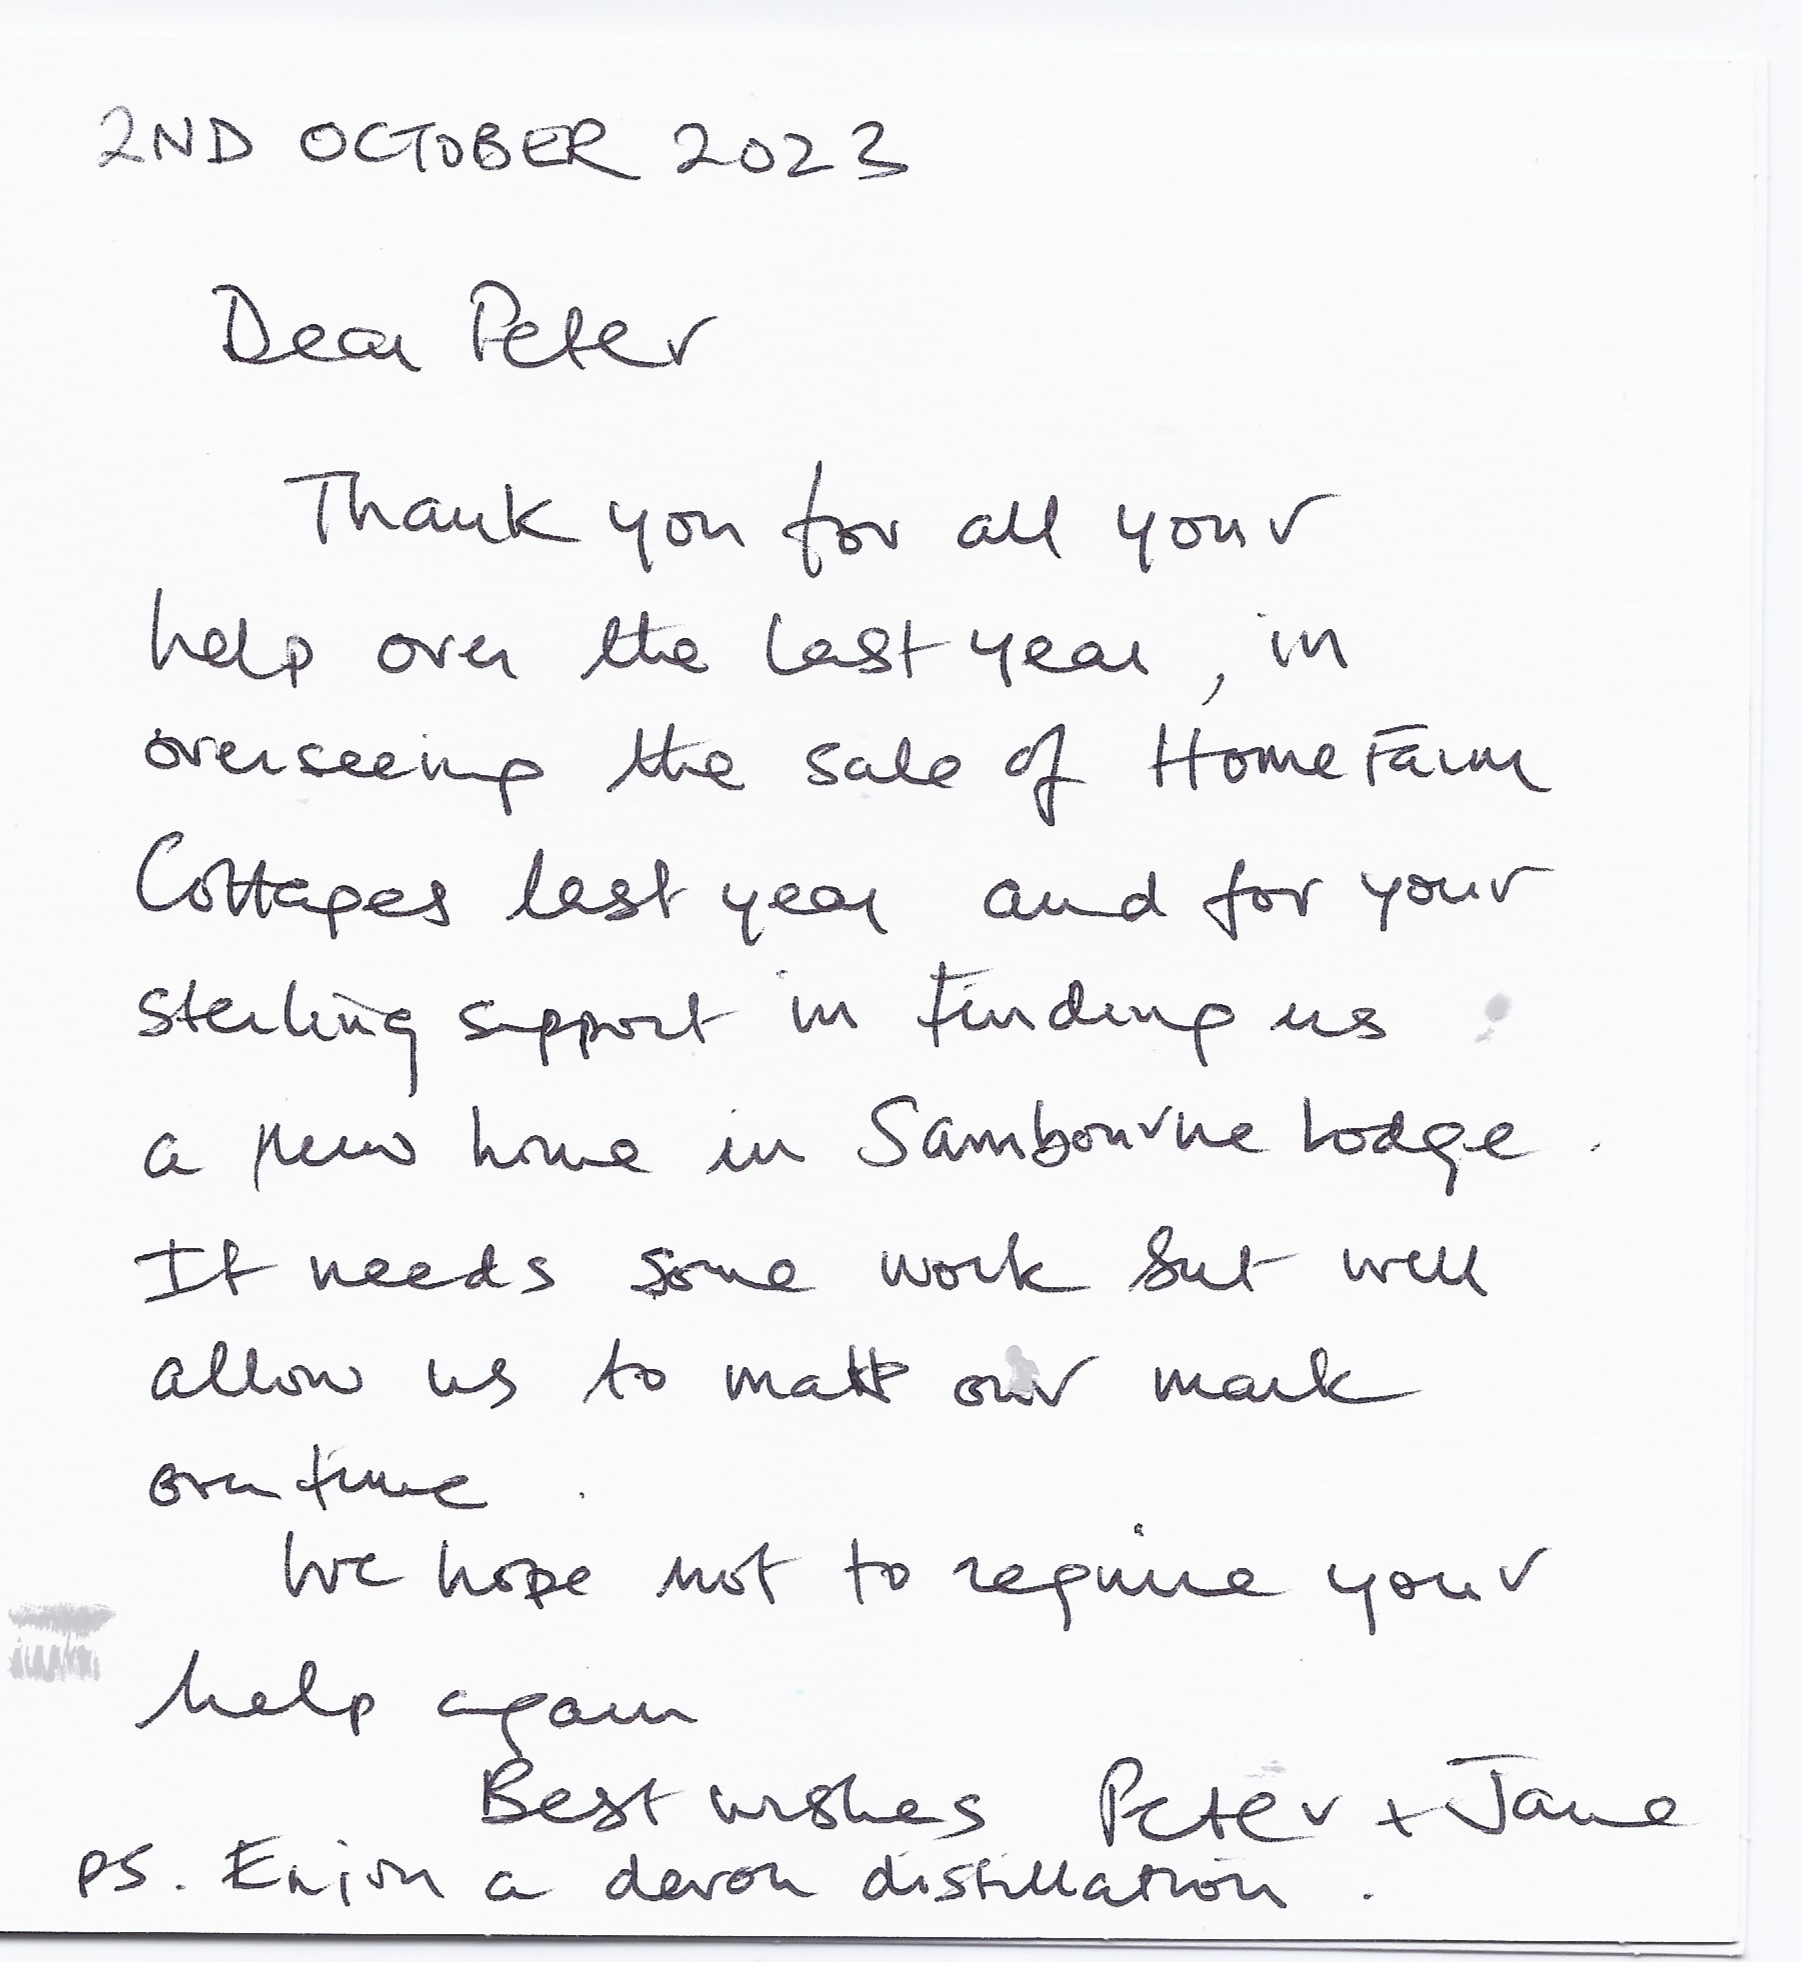 2ND OCTOBER 2023
Dear Peter
Thank you for all your
help over the last year, in
overseeing the sale of Home Farm
Cottages last year and for your
sterling support in finding us
a new home in Sambourne Lodge.
It needs some work but will
allow us to our mark
over time.
We hope not to require your
help again
Best wishes Peter + Jane
PS. Enjoy a devon distillation.